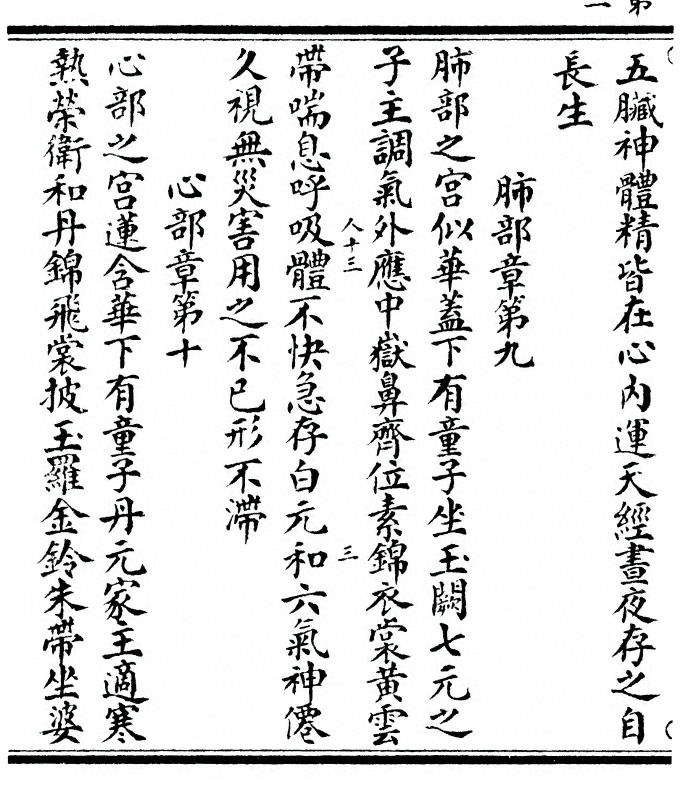 第一
五臟神體精皆在心內運天經晝夜存之自
長生
肺部章第九
肺部之宮似華蓋下有童子坐玉闕七元之
子主調氣外應中嶽鼻齊位素錦衣裳黃雲
人十三
三
帶喘息呼吸體不快急存白元和六氣神僊
久視無災害用之不已形不滯
心部章第十
心部之宮蓮含華下有童子丹元家主適寒
熱榮衛和丹錦飛裳披玉羅金鈴朱帶坐婆